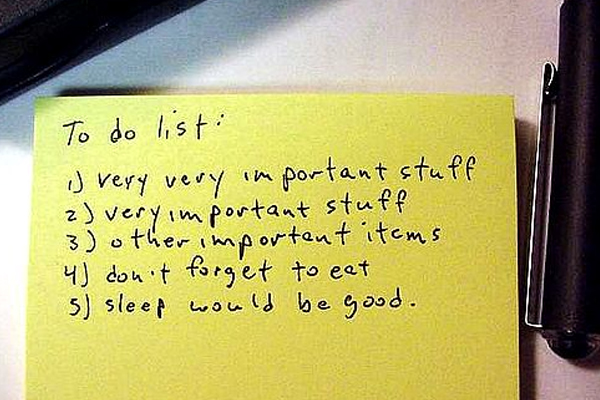 To do list:
1) very very important stuff
2) very important stuff
3) other important items
4) don't forget to eat
5) sleep would be good.